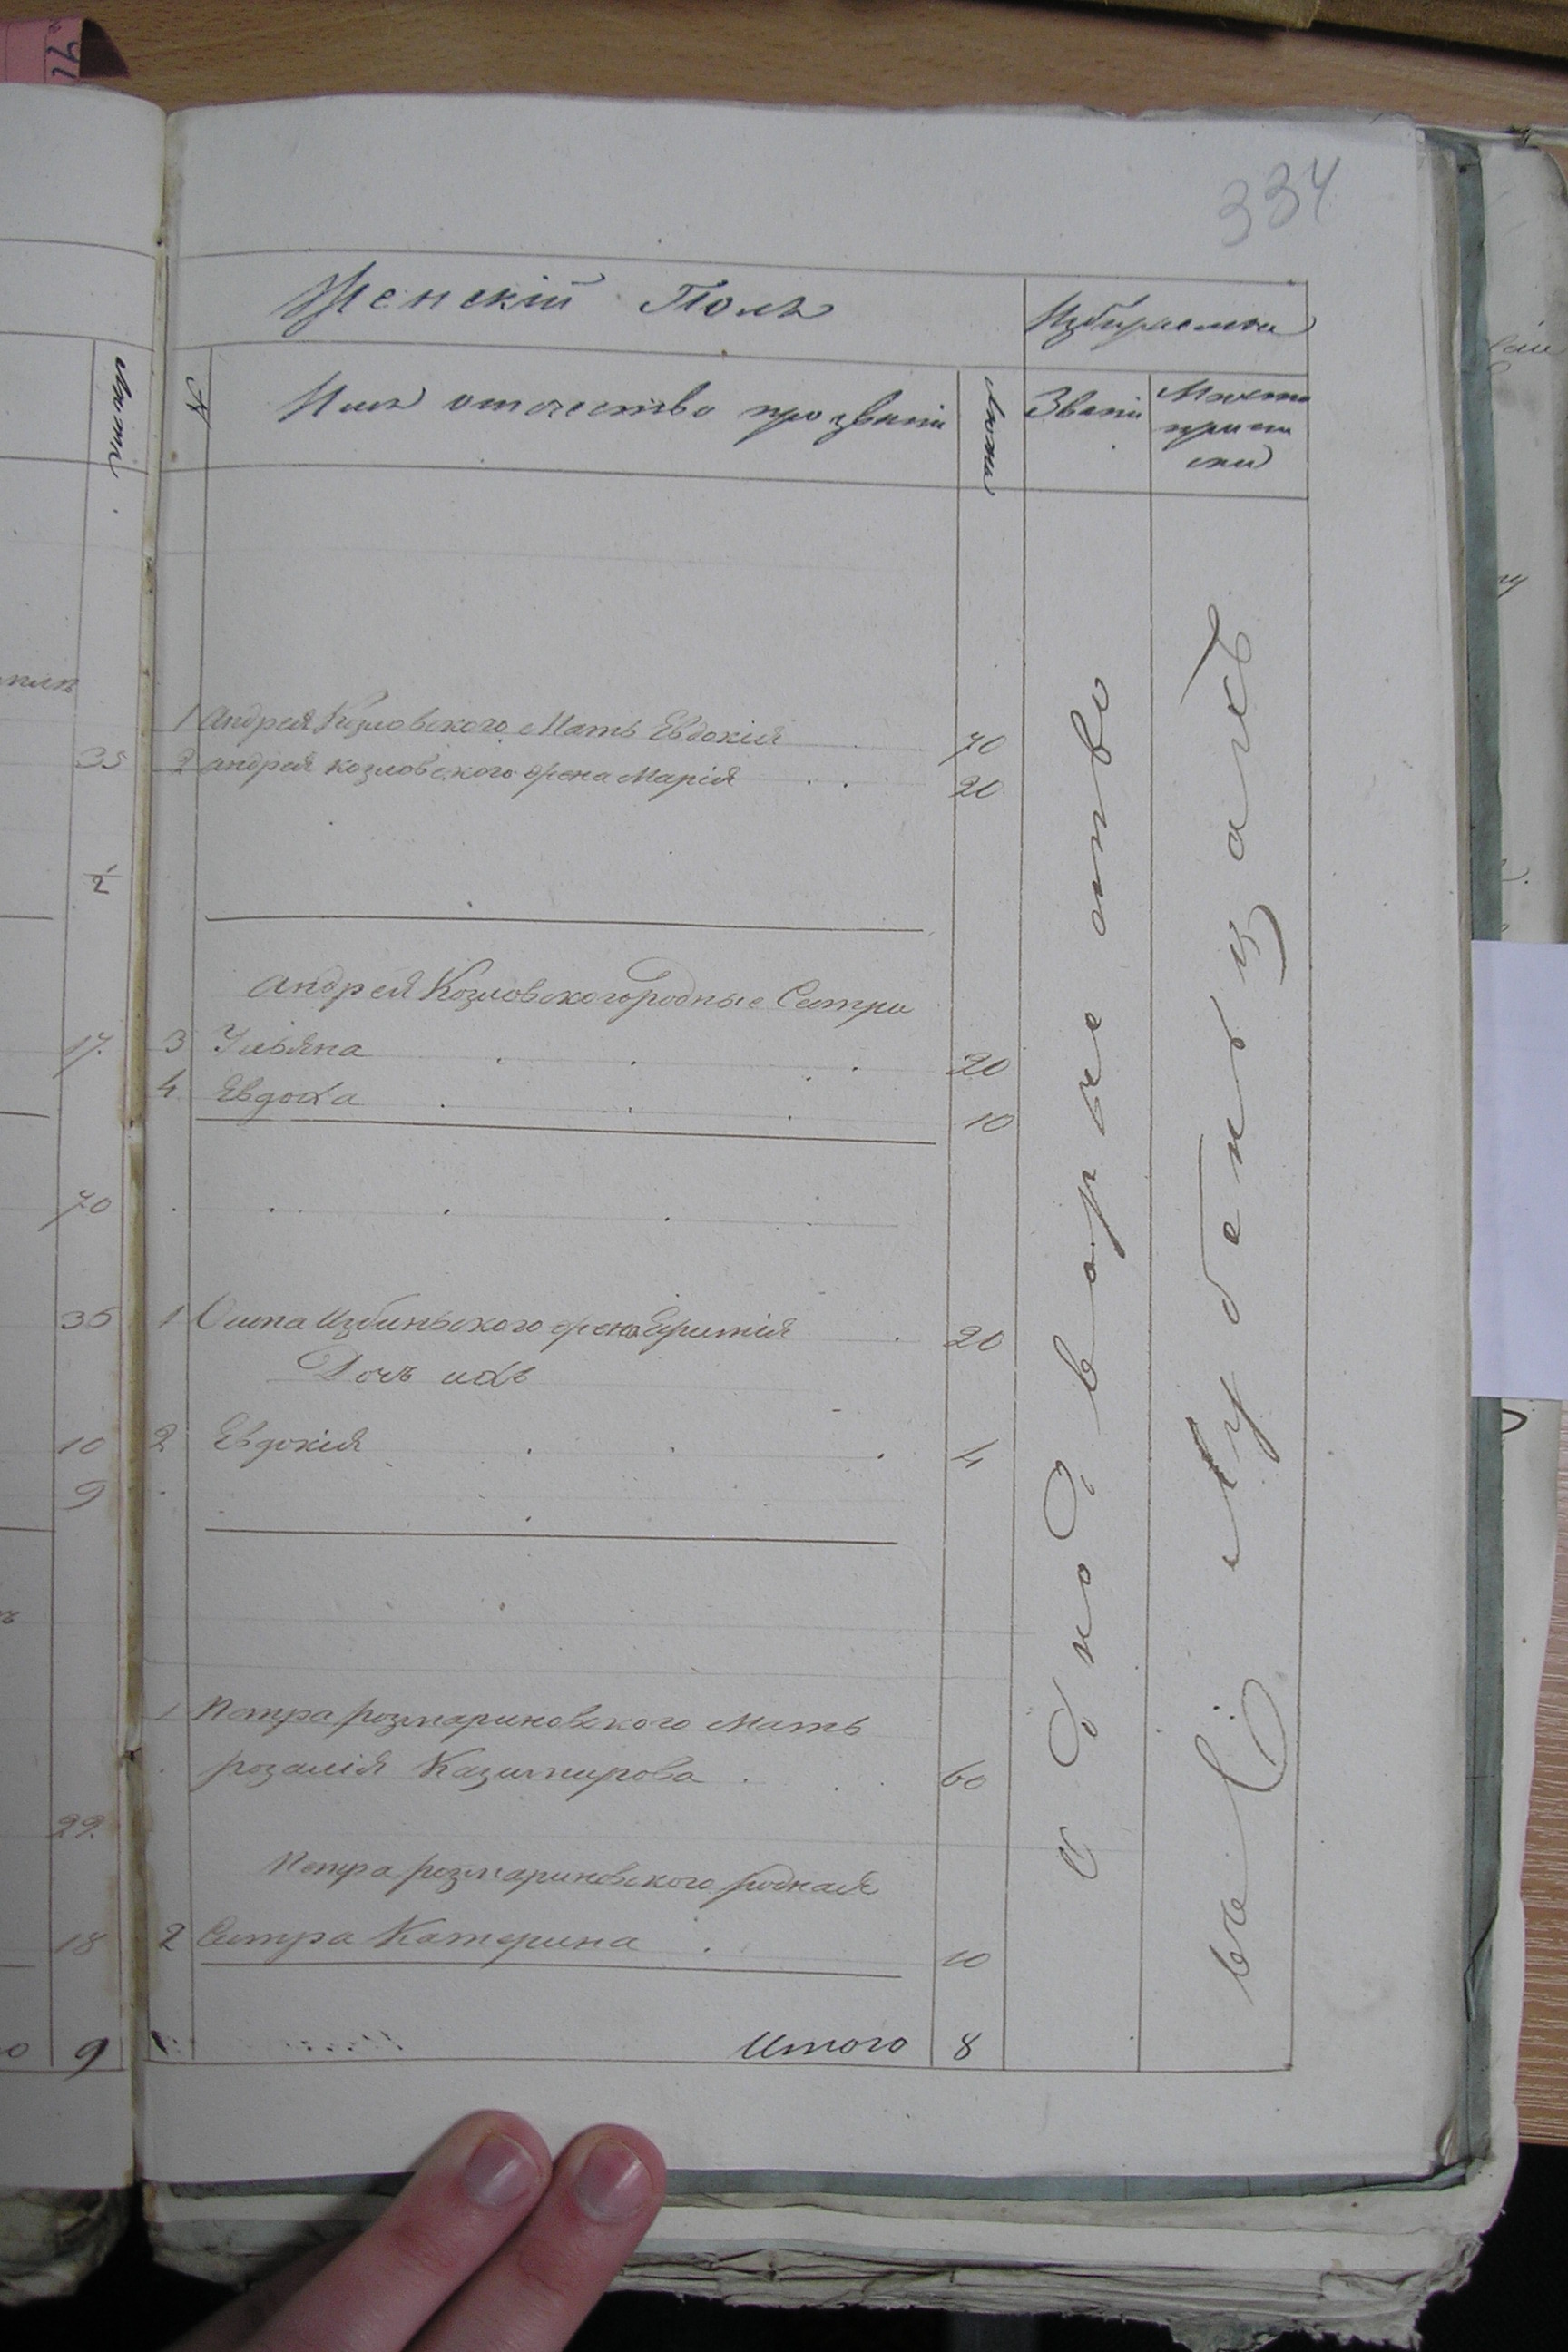 334
Женскій Полъ
Избираемыи
№
Имя отечество прозваніи
Лѣта
Званіи
Мѣсто
припи
ски
Лѣта
35
1/2
17
70
36
10
9
22
18
9
1 Андрея Козловского Мать Евдокія 70
2 андрея козловского жена Марія 20
андрея Козловского родные Сестри
3 Ульяна 20
4 Евдоха 10
1 Осипа Избинского жена 20
Дочъ ихъ
2 Евдокія 4
1 Петра розмариновского Мать
розалія Казимирова 60
Петра розмариновского родная
2 Сестра Катерина 10
Итого 8
однодворчество
въ Лубенцахъ